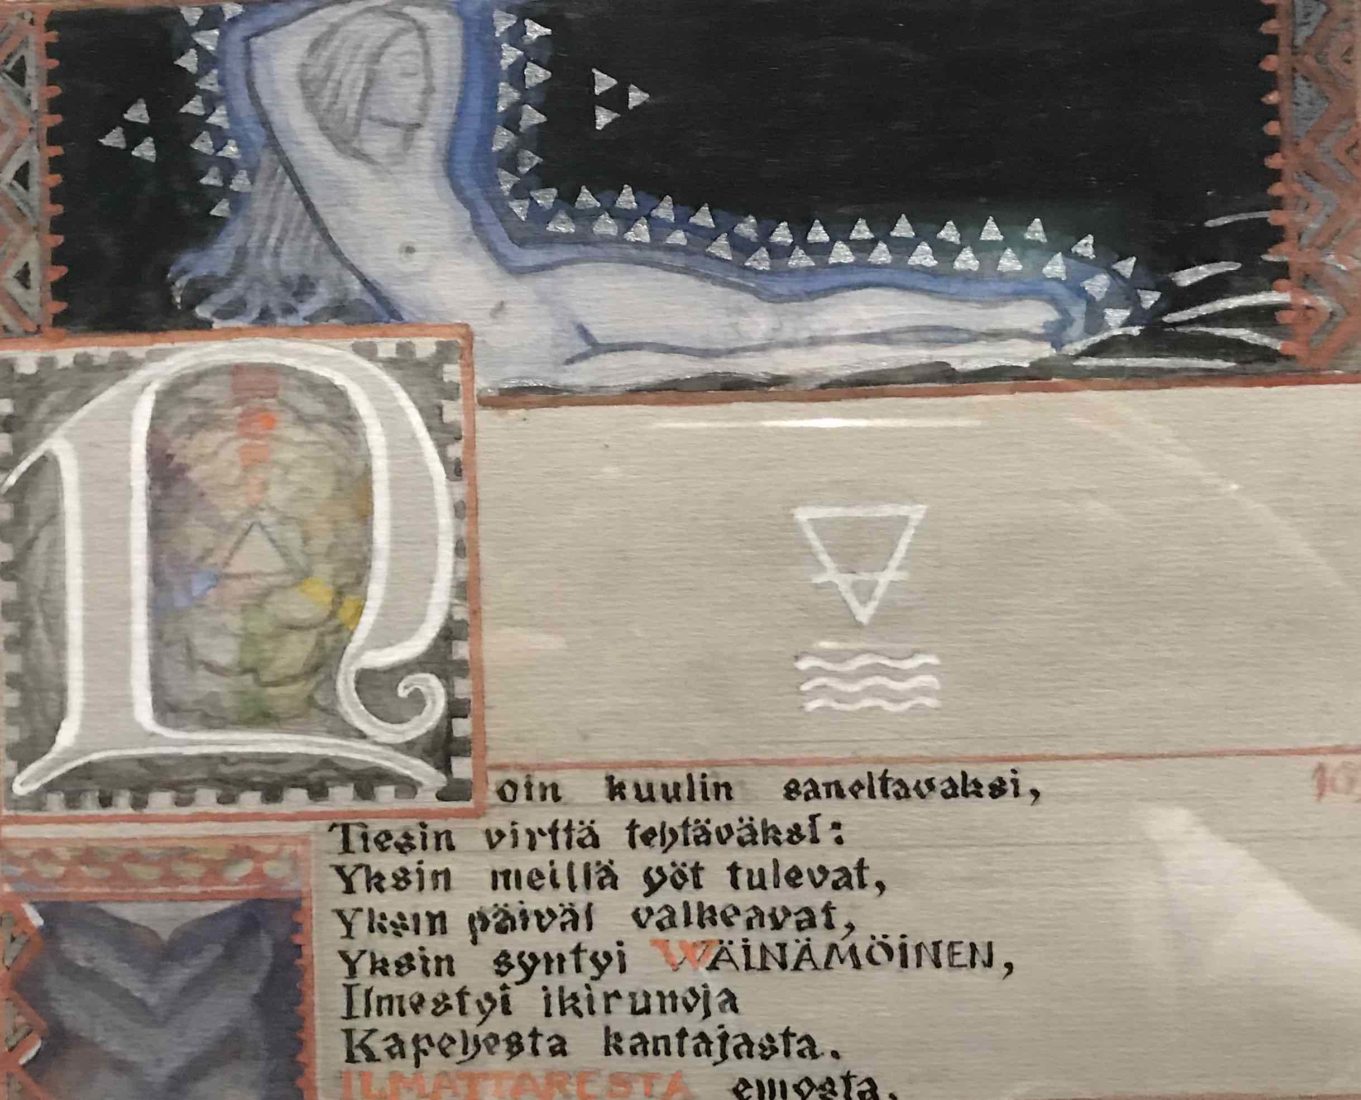 Noin kuulin saneltavaksi,
Tiesin virttä tehtäväksi:
Yksin meillä yöt tulevat,
Yksin päivät valkeavat,
Yksin syntyi WÄINÄMÖINEN,
Ilmestyi ikirunoja
Kapehesta kantajasta.
ILMATTARESTA emosta.